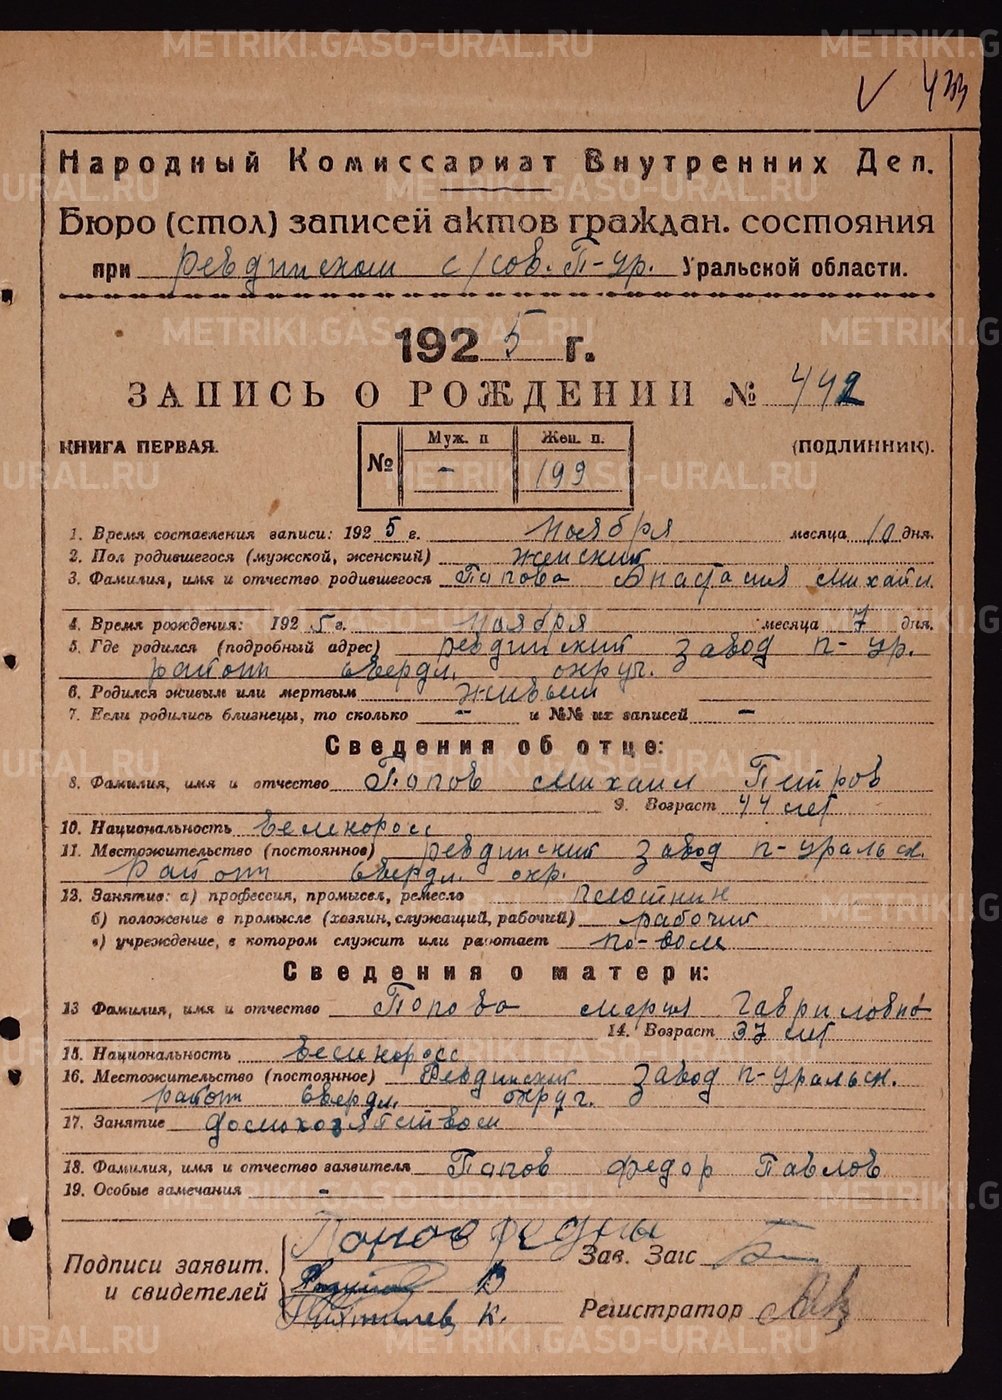 METRIKI.GASO-URAL.RU
V 433
Народный Комиссариат Внутренних Дел.
Бюро (стол) записей актов граждан. состояния
при Ревдинском с/сов. П-ур. Уральской области.
1925 г.
ЗАПИСЬ О РОЖДЕНИИ № 442
КНИГА ПЕРВАЯ. № Муж. п – Жен. п. 199 (ПОДЛИННИК).
1. Время составления записи: 1925 г. Ноября месяца 10 дня.
2. Пол родившегося (мужской, женский) женский
3. Фамилия, имя и отчество родившегося Попова Анастасия Михайл
4. Время рождения: 1925 г. Ноября месяца 7 дня.
5. Где родился (подробный адрес) Ревдинский завод П-ур.
район Свердл. округ.
6. Родился живым или мертвым живым
7. Если родились близнецы, то сколько – и №№ их записей –
Сведения об отце:
8. Фамилия, имя и отчество Попов Михаил Петров
9. Возраст 44 лет
10. Национальность Великоросс
11. Местожительство (постоянное) Ревдинский завод П-Уральск.
Район Свердл. окр.
12. Занятие: а) профессия, промысел, ремесло плотник
б) положение в промысле (хозяин, служащий, рабочий) рабочий
в) учреждение, в котором служит или работает
Сведения о матери:
13 Фамилия, имя и отчество Попова Мария Гавриловна
14. Возраст 37 лет
15. Национальность Великоросс
16. Местожительство (постоянное) Ревдинский завод П-Уральск.
район Свердл. округ.
17. Занятие Домохозяйством
18. Фамилия, имя и отчество заявителя Попов Федор Павлов
19. Особые замечания –
Подписи заявит. Попов Зав. Загс
и свидетелей В
К. Регистратор